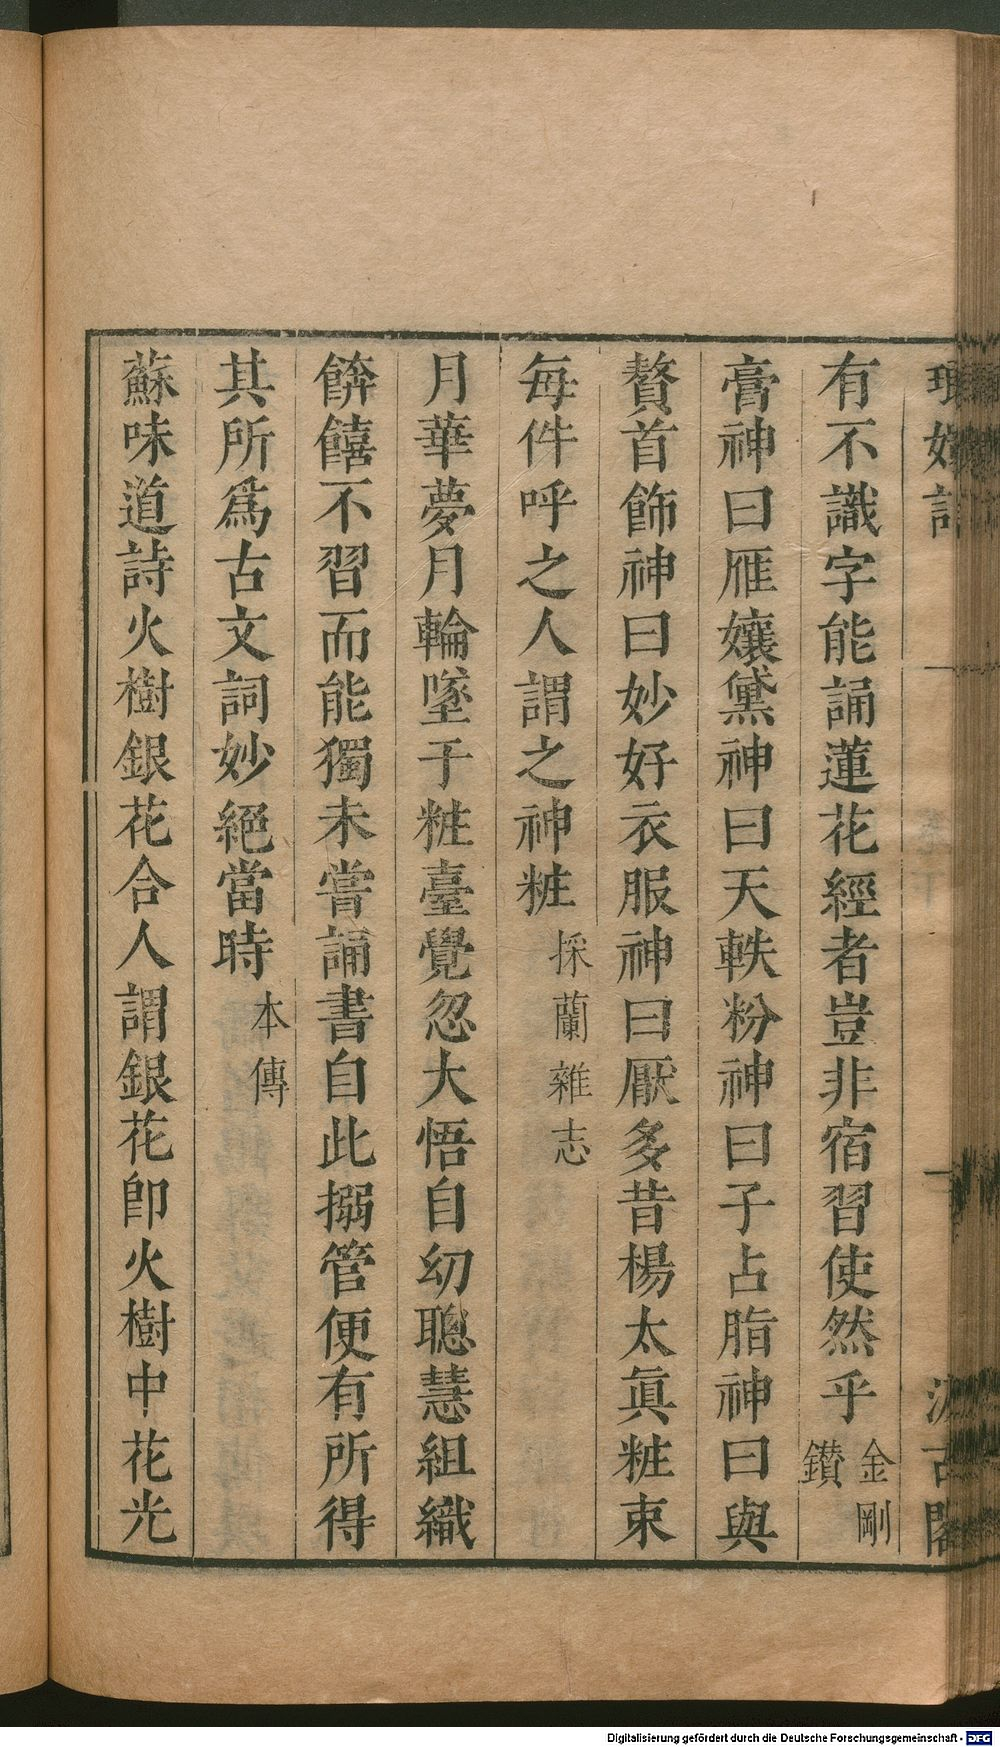 有不識字能誦蓮花經者豈非宿習使然乎金剛鑚
膏神曰雁孃黛神曰天軼粉神曰子占脂神曰與
贅首飾神曰妙好衣服神曰厭多昔楊太眞粧束
每件呼之人謂之神粧採蘭雜志
月華夢月輪墜于粧臺覺忽大悟自幼聰慧組織
餴饎不習而能獨未嘗誦書自此搦管便有所得
其所爲古文詞妙絕當時本傳
蘇味道詩火樹銀花合人謂銀花卽火樹中花光
Digitalisierung gefördert durch die Deutsche Forschungsgemeinschaft - DFG